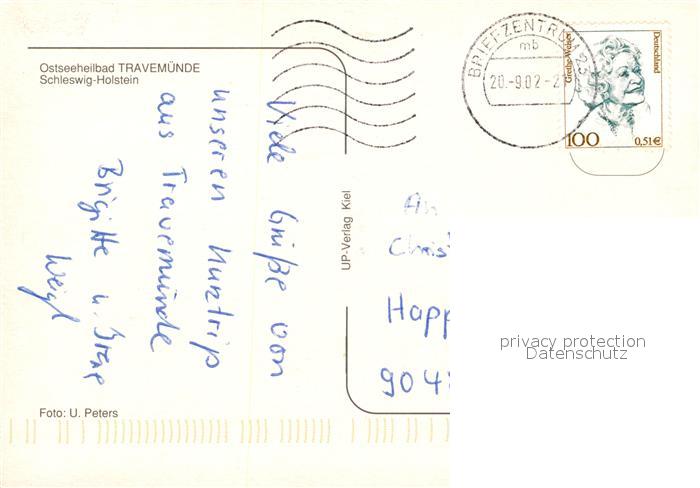 Ostseeheilbad TRAVEMÜNDE
Schleswig-Holstein
Viele Grüße von
unseren Kurztrip
aus Travemünde
Brigitte u.
Weigl
Foto: U. Peters
UP-Verlag Kiel
BRIEFZENTRUM 23
mb
20.-9.02-2
Grethe Weiser
Deutschland
100
0,51€
An
Christ
Happ
904
privacy protection
Datenschutz